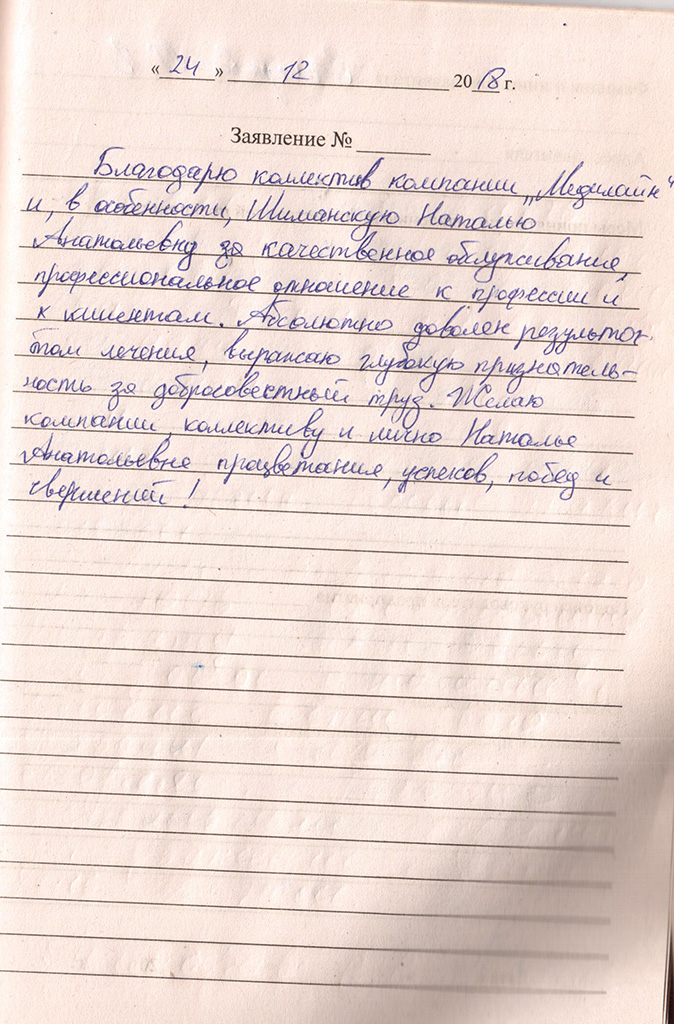 « 24 » 12 2018 г.
Заявление №
Благодарю коллектив компании „Медилайн“
и, в особенности, Шиманскую Наталью
Анатольевну за качественное обслуживание,
профессиональное отношение к профессии и
к клиентам. Абсолютно доволен результа-
том лечения, выражаю глубокую признатель-
ность за добросовестный труд. Желаю
компании, коллективу и лично Наталье
Анатольевне процветания, успехов, побед и
свершений!